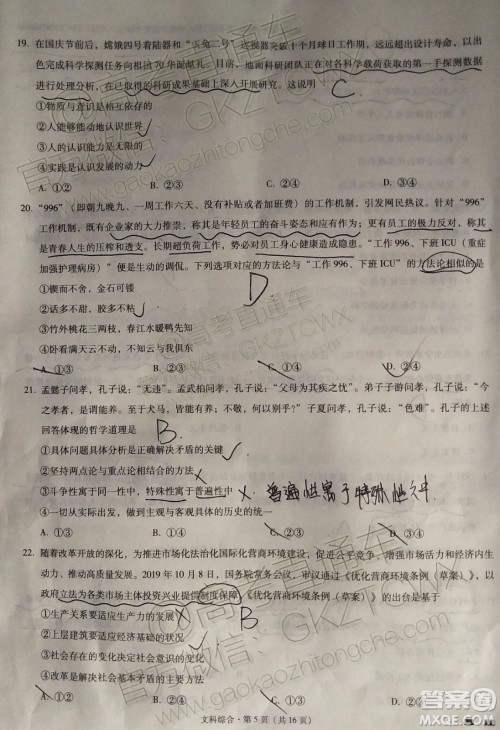 19. 在国庆节前后，嫦娥四号着陆器和“玉兔二号”巡视器突破十个月球日工作期，远远超出设计寿命，以出
色完成科学探测任务向祖国70华诞献礼。目前，地面科研团队正在对各科学载荷获取的第一手探测数据
进行处理分析，在已取得的科研成果基础上深入开展研究。这说明
C
①物质与意识是相互依存的
②人能够能动地认识世界
③人的认识能力是无限的
④实践是认识发展的动力
A. ①②　B. ②③　C. ②④　D. ③④
20. “996”（即朝九晚九、一周工作六天、没有补贴或者加班费）的工作机制，引发网民热议。针对“996”
工作机制，既有企业家的大力推崇，称其是年轻员工的奋斗姿态和应有作为；更有员工的极力反对，称其
是青春人生的压榨和透支。长期超负荷工作，势必对员工身心健康造成隐患。“工作996、下班ICU（重症
加强护理病房）”便是生动的调侃。下列选项的方法论与“工作996、下班ICU”的方法论相似的是
D
①锲而不舍，金石可镂
②话多不甜，胶多不粘
③竹外桃花三两枝，春江水暖鸭先知
④卧看满天云不动，不知云与我俱东
A. ①③　B. ①④　C. ②③　D. ②④
21. 孟懿子问孝，孔子说：“无违”。孟武柏问孝，孔子说：“父母为其疾之忧”。弟子子游问孝，孔子说：“今
之孝者，是谓能养。至于犬马，皆能有养；不敬，何以别乎？”子夏问孝，孔子说：“色难”。孔子的上述
回答体现的哲学道理是
B
①具体问题具体分析是正确解决矛盾的关键
②坚持两点论与重点论相结合的方法
③斗争性寓于同一性中，特殊性寓于普遍性中 ×. 普遍性寓于特殊性之中
④一切从实际出发，做到主观与客观具体的历史的统一
A. ①③　B. ①④　C. ②③　D. ②④
22. 随着改革开放的深化，为推进市场化法治化国际化营商环境建设，促进公平竞争，增强市场活力和经济内生
动力、推动高质量发展。2019年10月8日，国务院常务会议，审议通过《优化营商环境条例（草案）》，以
政府立法为各类市场主体投资兴业提供制度保障。《优化营商环境条例（草案）》的出台是基于
B
①生产关系要适应生产力的发展
②上层建筑要适应经济基础的状况
③社会存在的变化决定社会意识的变化
④改革是解决社会基本矛盾的根本途径
A. ①②　B. ②③　C. ①④　D. ③④
文科综合·第5页（共16页）
官方微信公众号：高考直通车
www.gaokaozhitongche.com
GKZTCWX
答案圈
MXQE.COM